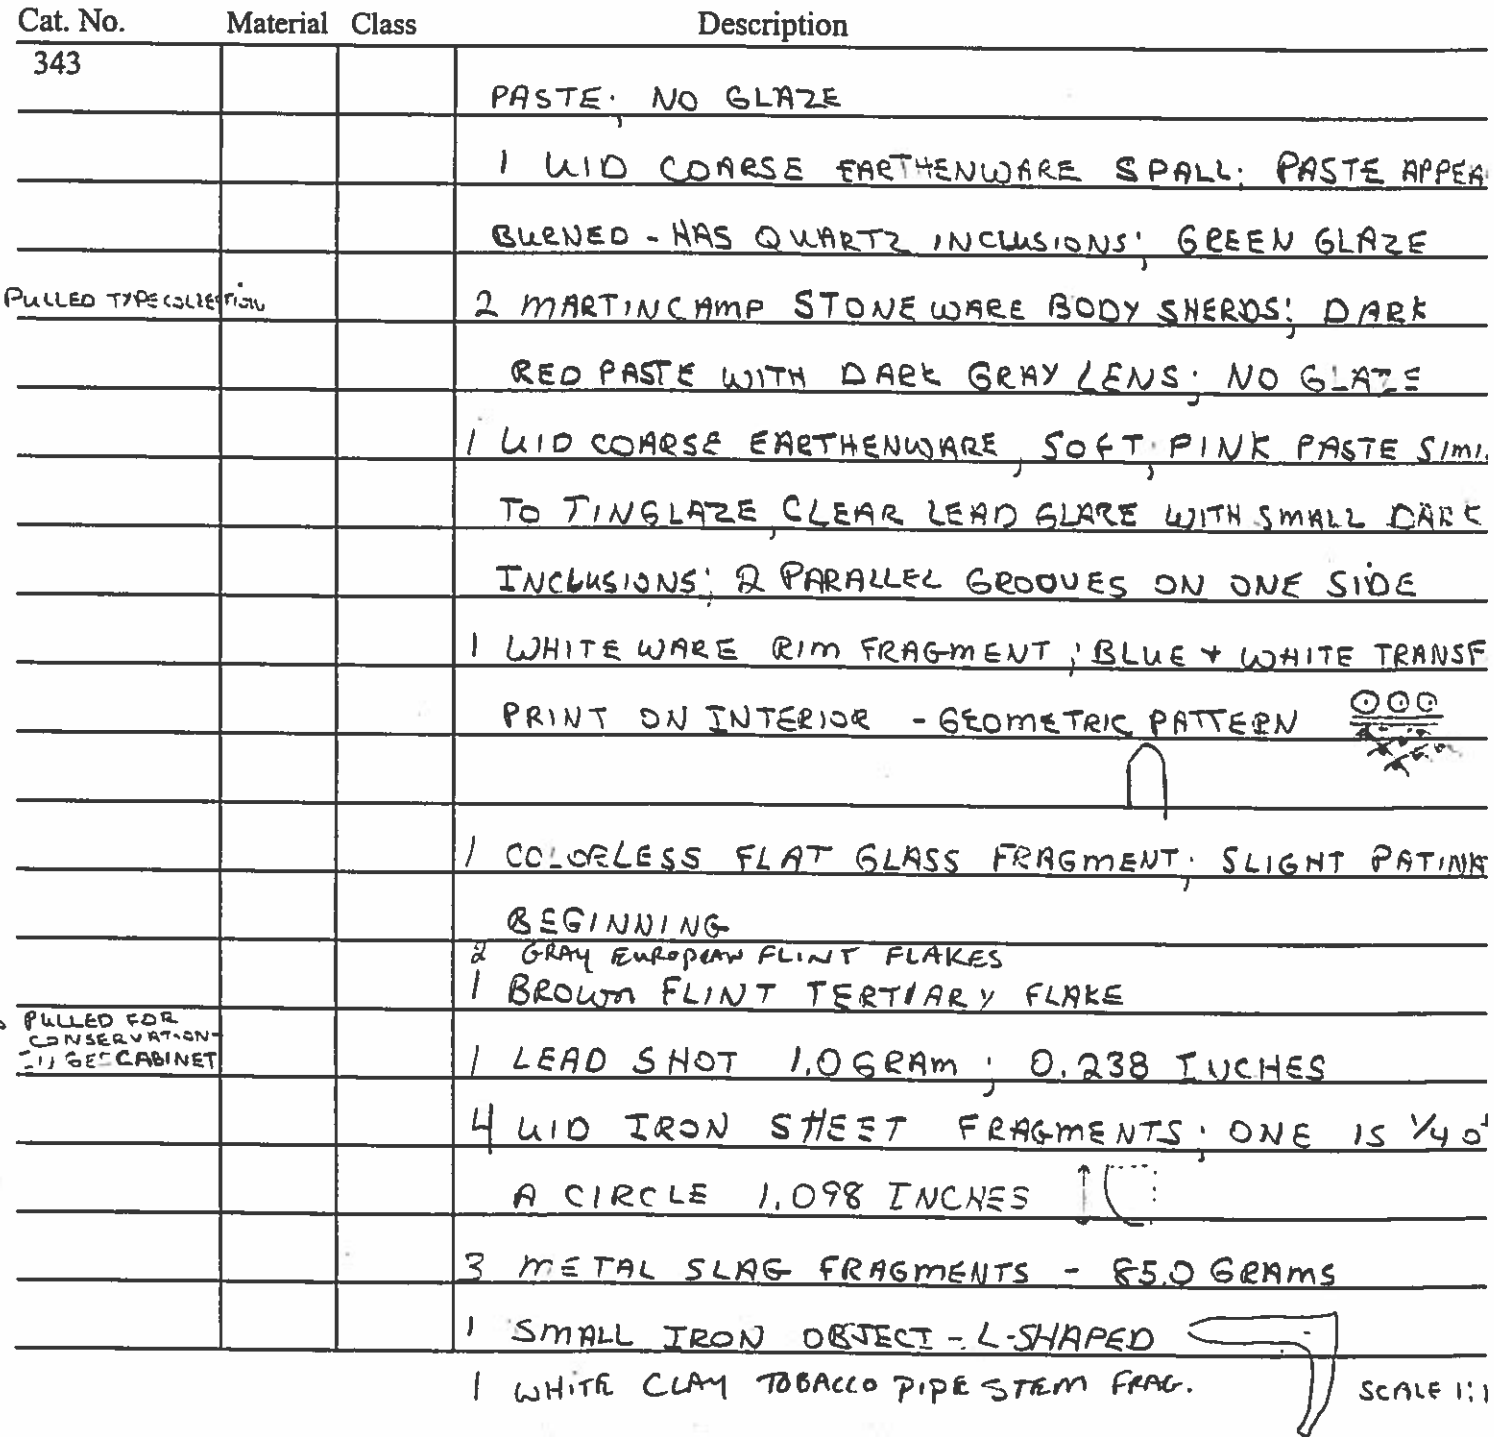 Cat. No. Material Class Description
343
PASTE; NO GLAZE
1 UID COARSE EARTHENWARE SPALL; PASTE APPEA
BURNED - HAS QUARTZ INCLUSIONS; GREEN GLAZE
PULLED TYPE COLLECTION 2 MARTINCAMP STONEWARE BODY SHERDS; DARK
RED PASTE WITH DARK GRAY LENS; NO GLAZE
1 UID COARSE EARTHENWARE, SOFT, PINK PASTE SIMI
TO TINGLAZE, CLEAR LEAD GLARE WITH SMALL DARK
INCLUSIONS; 2 PARALLEL GROOVES ON ONE SIDE
1 WHITEWARE RIM FRAGMENT; BLUE + WHITE TRANSF
PRINT ON INTERIOR - GEOMETRIC PATTERN
1 COLORLESS FLAT GLASS FRAGMENT; SLIGHT PATINA
BEGINNING
2 GRAY EUROPEAN FLINT FLAKES
1 BROWN FLINT TERTIARY FLAKE
PULLED FOR
CONSERVATION-
CABINET
1 LEAD SHOT 1.0 GRAM; 0.238 INCHES
4 UID IRON SHEET FRAGMENTS; ONE IS 1/4 of
A CIRCLE 1.098 INCHES
3 METAL SLAG FRAGMENTS - 85.0 GRAMS
1 SMALL IRON OBJECT - L-SHAPED
1 WHITE CLAY TOBACCO PIPE STEM FRAG. SCALE 1:1